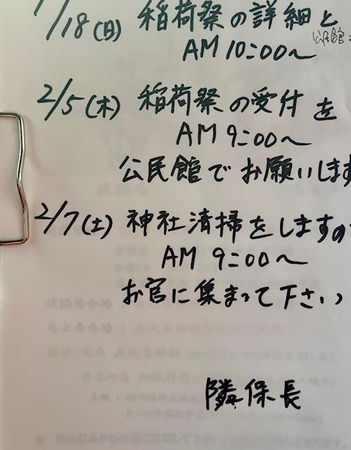 1/18(日) 稲荷祭の詳細と
公民館
AM 10:00〜
2/5(木) 稲荷祭の受付を
AM 9:00〜
公民館でお願いします
2/7(土) 神社清掃をしますの
AM 9:00〜
お宮に集まって下さい
隣保長